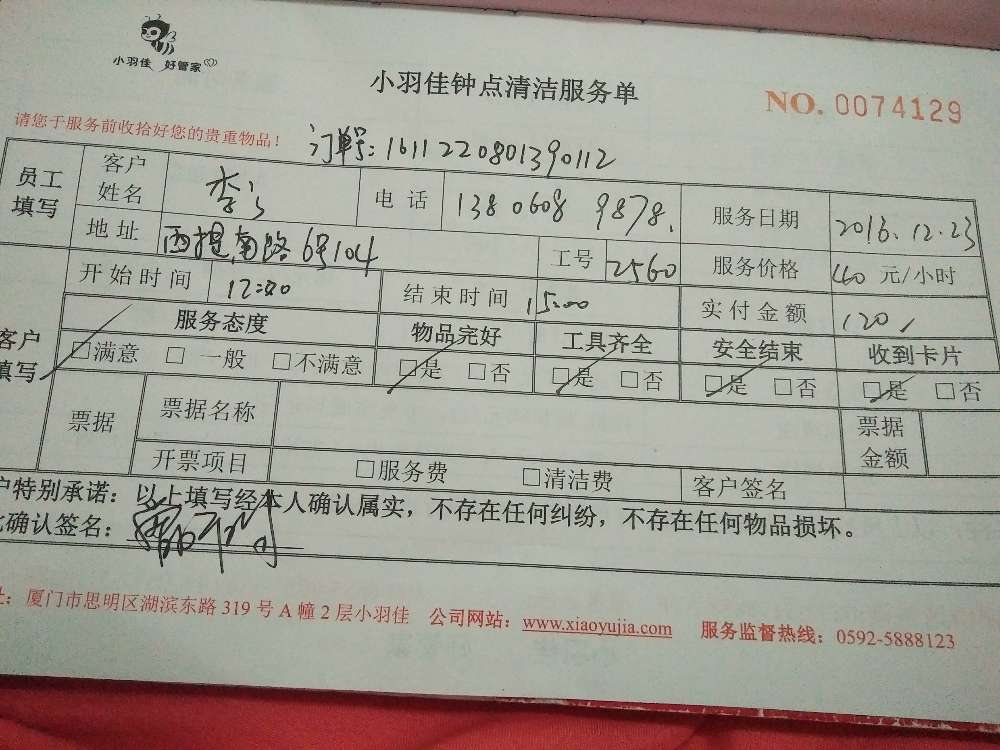 小羽佳 好管家
小羽佳钟点清洁服务单
NO. 0074129
请您于服务前收拾好您的贵重物品！
订单号：1611220801390112
员工填写 客户姓名 李 电话 13806089878. 服务日期 2016.12.23
地址 西堤南路6号104 工号 2560 服务价格 40 元/小时
开始时间 12:00 结束时间 15:00 实付金额 120
客户填写 服务态度 物品完好 工具齐全 安全结束 收到卡片
□满意 □一般 □不满意 □是 □否 □是 □否 □是 □否 □是 □否
票据 票据名称 票据金额
开票项目 □服务费 □清洁费 客户签名
户特别承诺：以上填写经本人确认属实，不存在任何纠纷，不存在任何物品损坏。
确认签名：
址：厦门市思明区湖滨东路 319 号 A 幢 2 层小羽佳 公司网站：www.xiaoyujia.com 服务监督热线：0592-5888123